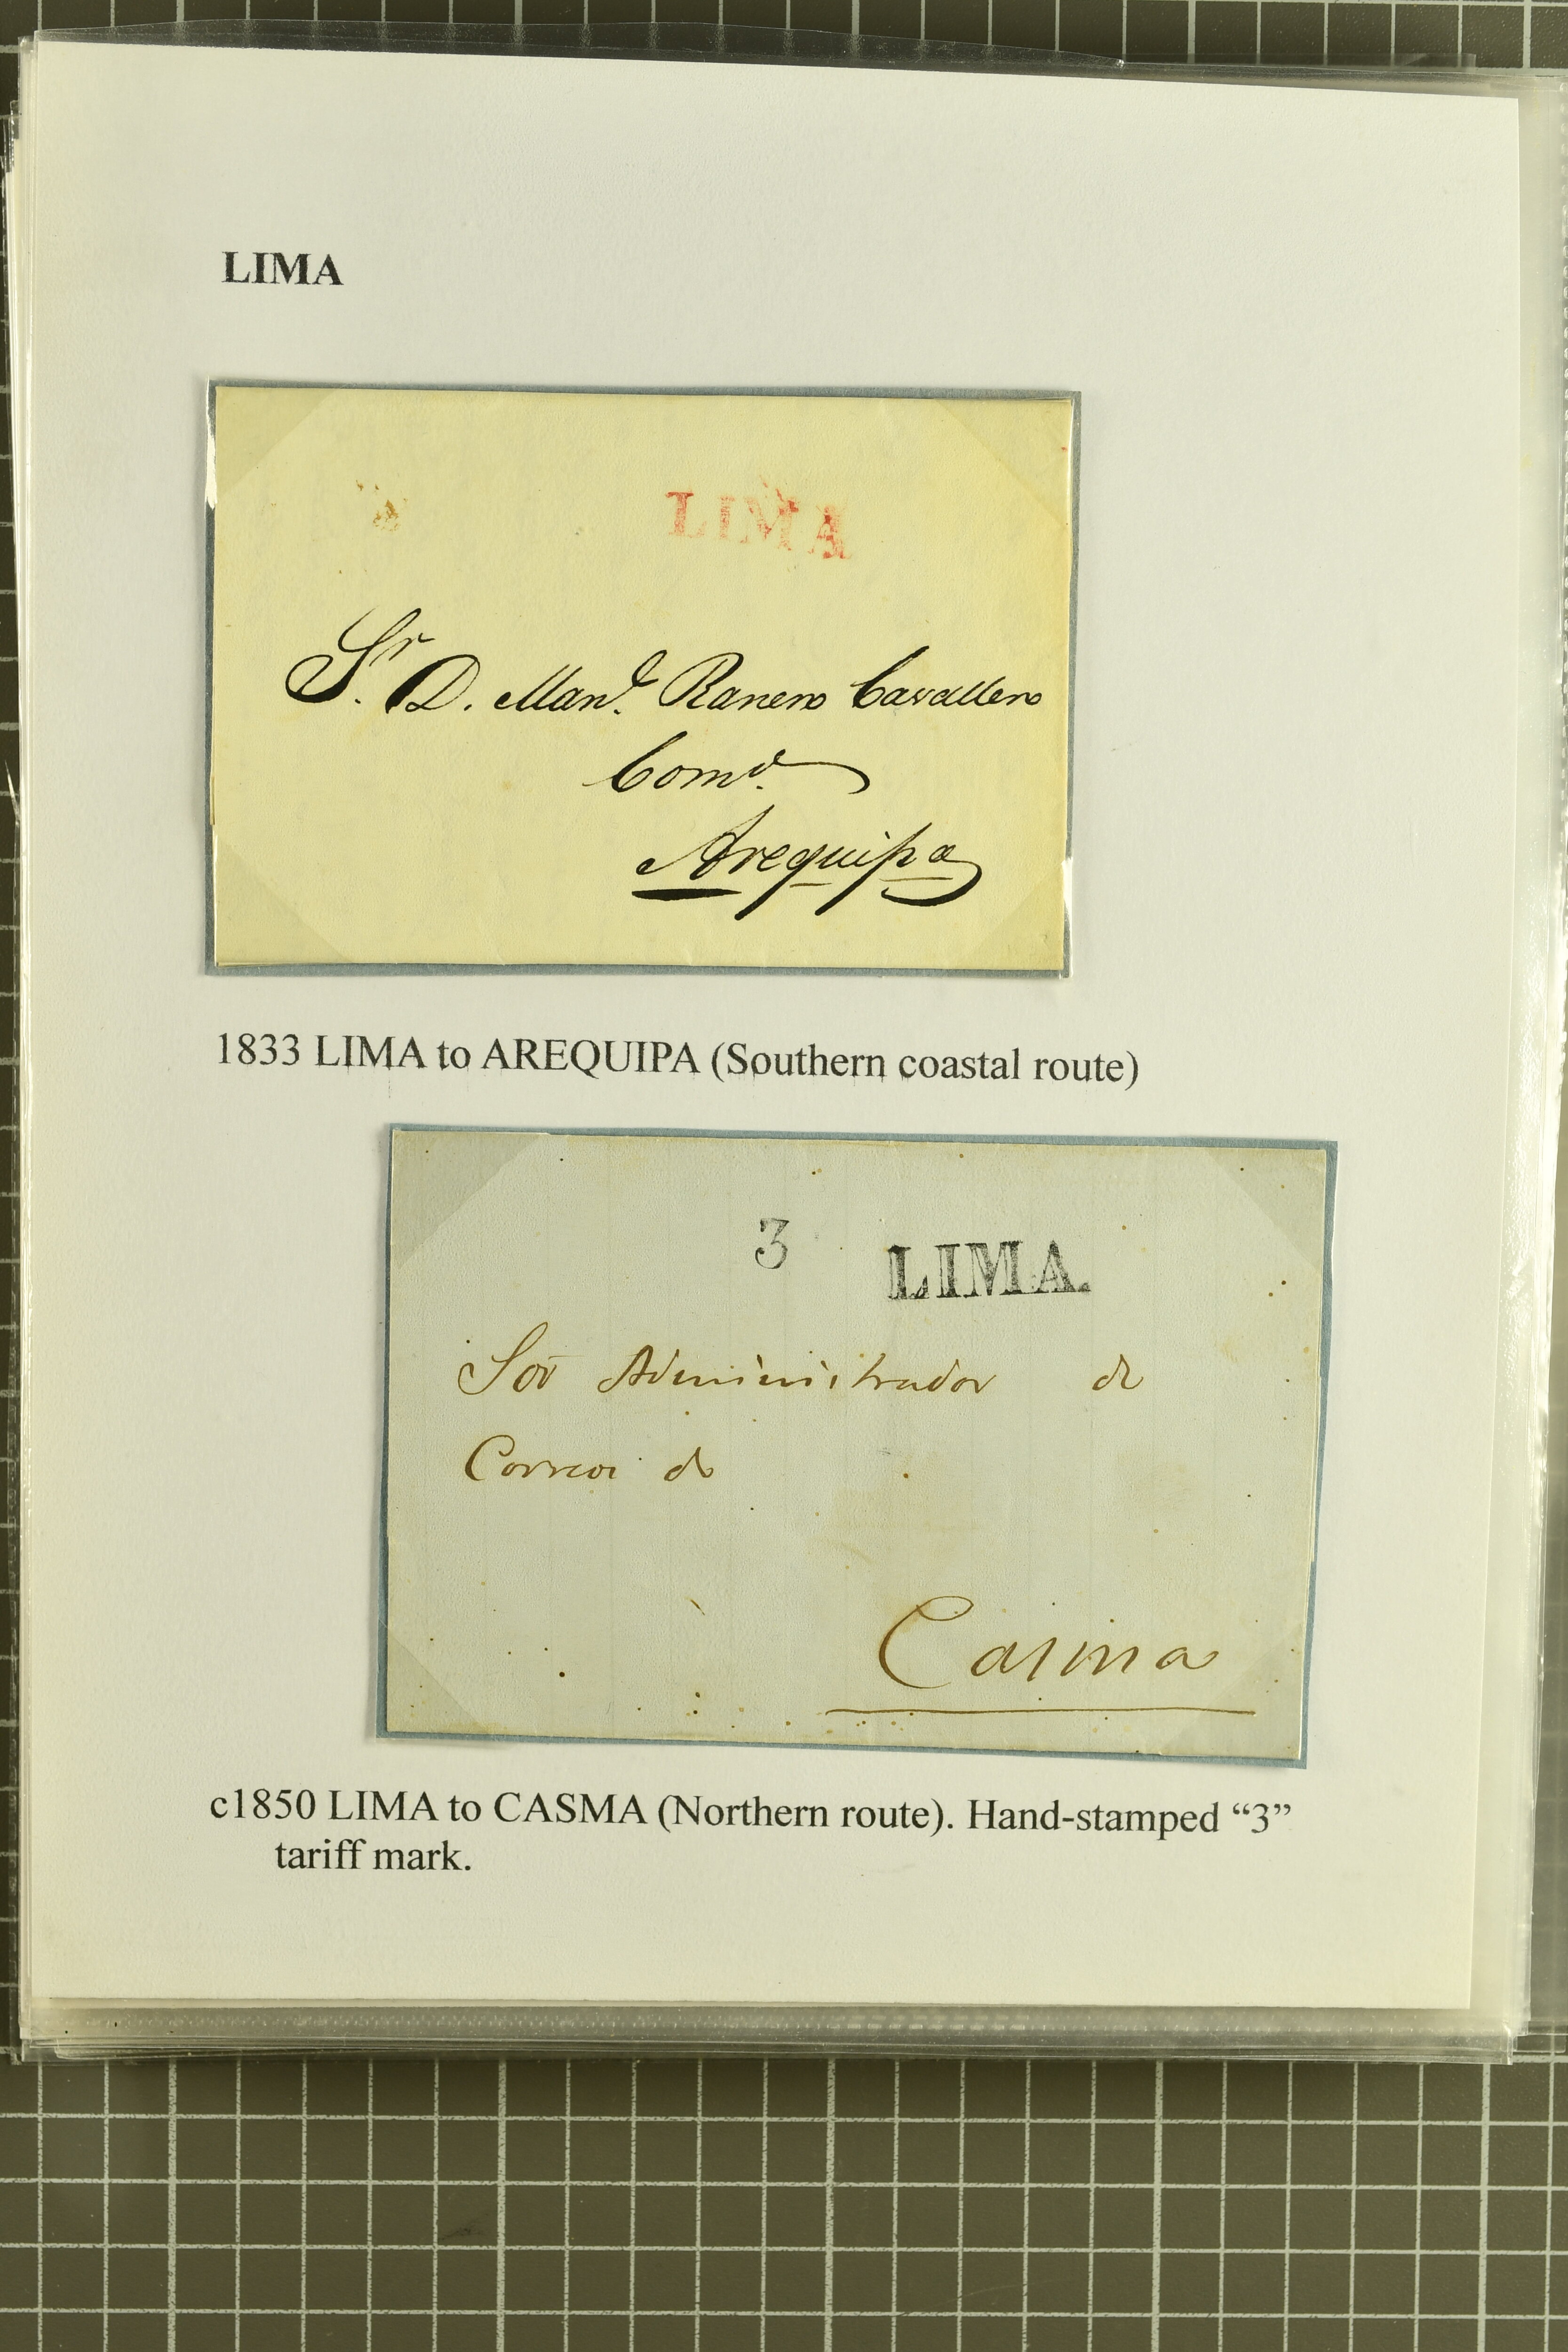 LIMA
LIMA
Sr. D. Manl. Ranero Cavallero
Como.
Arequipa
1833 LIMA to AREQUIPA (Southern coastal route)
3 LIMA.
Sor Administrador de
Correos de
Casma
c1850 LIMA to CASMA (Northern route). Hand-stamped “3”
tariff mark.